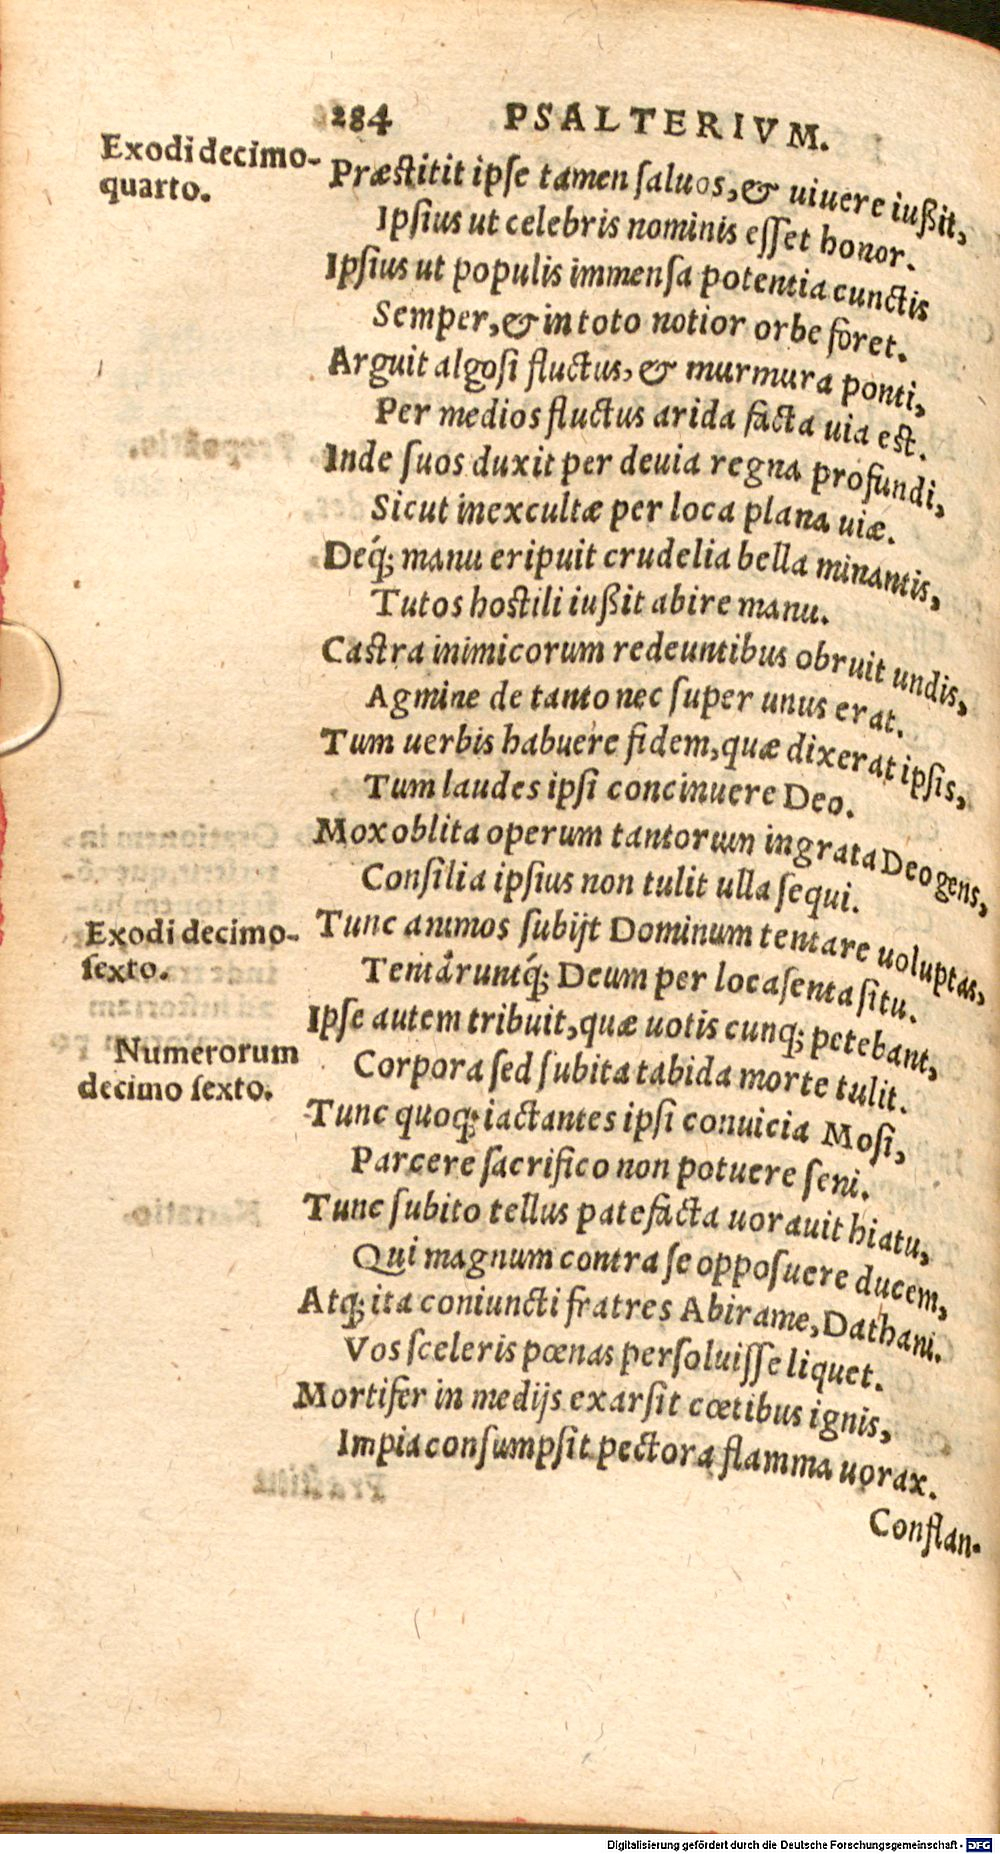 284 PSALTERIVM.
Exodi decimo-
quarto.
Præstitit ipse tamen saluos, & uiuere iußit,
Ipsius ut celebris nominis esset honor.
Ipsius ut populis immensa potentia cunctis
Semper, & in toto notior orbe foret.
Arguit algosi fluctus, & murmura ponti,
Per medios fluctus arida facta uia est.
Inde suos duxit per deuia regna profundi,
Sicut inexcultæ per loca plana uiæ.
Deq́; manu eripuit crudelia bella minantis,
Tutos hostili iußit abire manu.
Castra inimicorum redeuntibus obruit undis,
Agmine de tanto nec super unus erat.
Tum uerbis habuere fidem, quæ dixerat ipsis,
Tum laudes ipsi concinuere Deo.
Mox oblita operum tantorum ingrata Deo gens,
Consilia ipsius non tulit ulla sequi.
Exodi decimo-
sexto.
Tunc animos subijt Dominum tentare uoluptas,
Tentâruntq́; Deum per loca senta situ.
Ipse autem tribuit, quæ uotis cunq; petebant,
Corpora sed subita tabida morte tulit.
Numerorum
decimo sexto.
Tunc quoq; iactantes ipsi conuicia Mosi,
Parcere sacrifico non potuere seni.
Tunc subito tellus patefacta uorauit hiatu,
Qui magnum contra se opposuere ducem,
Atq; ita coniuncti fratres Abirame, Dathani.
Vos sceleris pœnas persoluisse liquet.
Mortifer in medijs exarsit cœtibus ignis,
Impia consumpsit pectora flamma uorax.
Conflan-
Digitalisierung gefördert durch die Deutsche Forschungsgemeinschaft - DFG